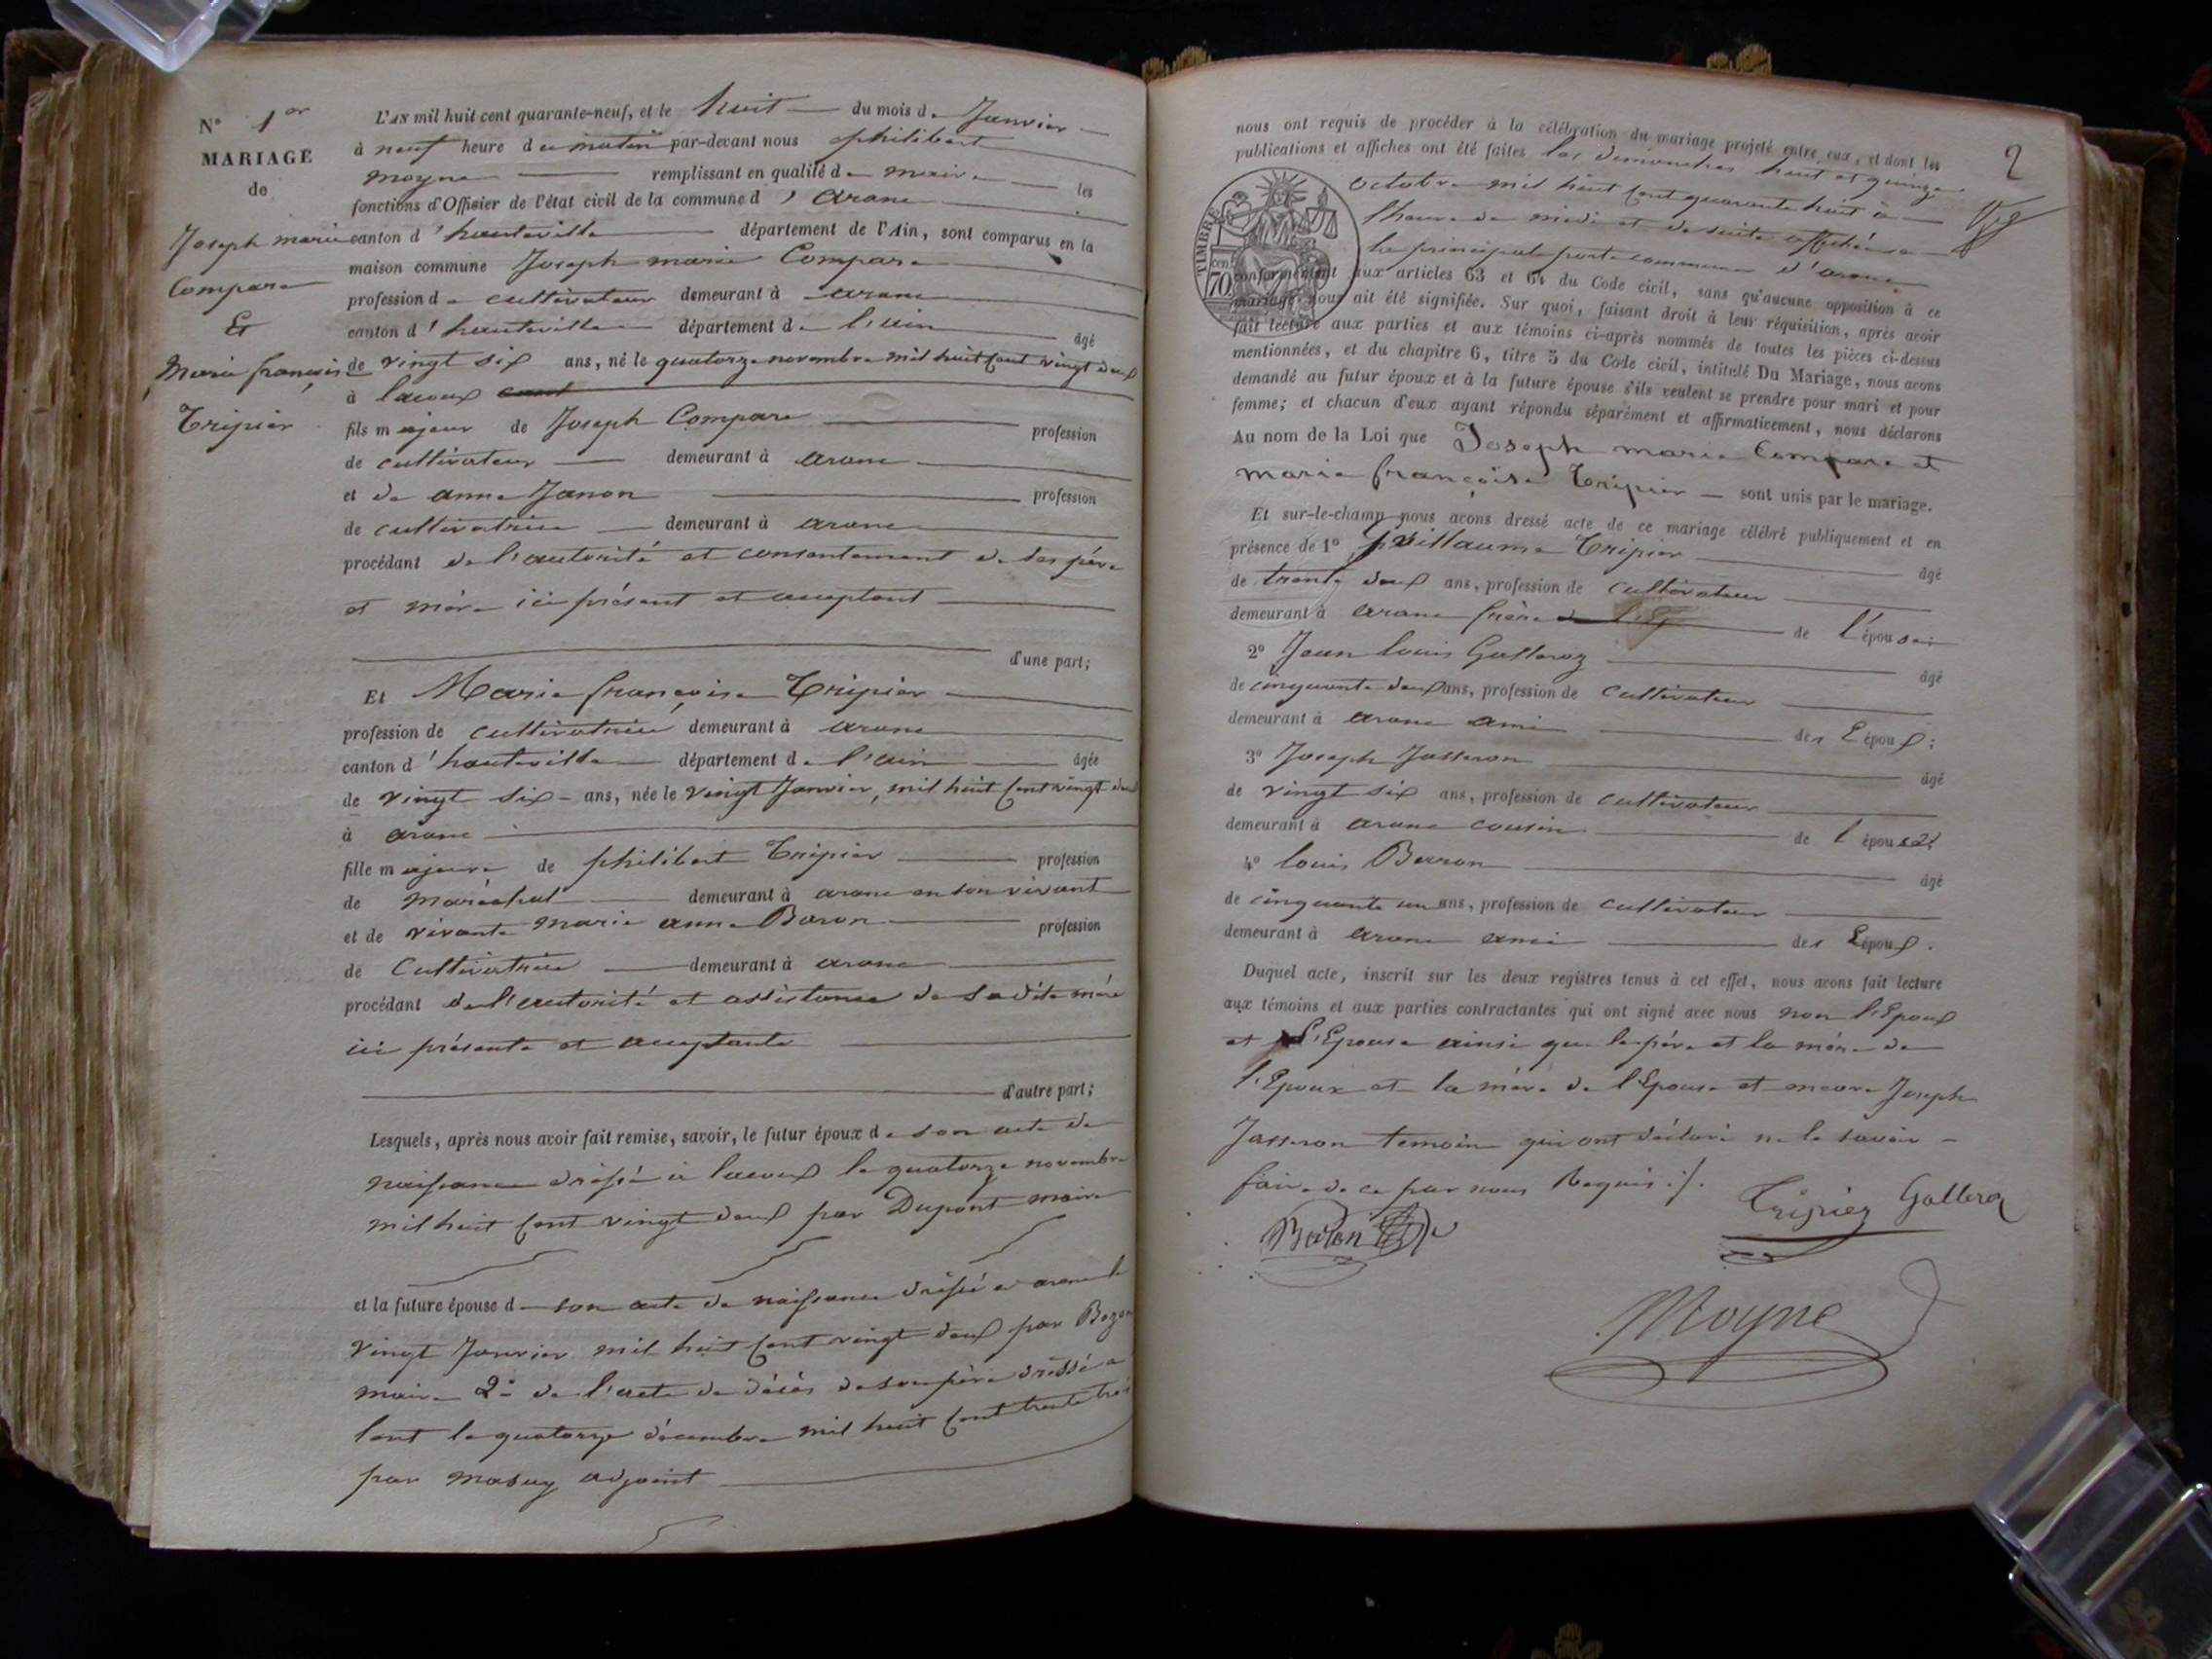 N° 1er
MARIAGE
de
Joseph marie
Compare
Et
Marie françoise
Tripier
L'AN mil huit cent quarante-neuf, et le huit du mois de Janvier
à neuf heure du matin par-devant nous philibert
moyne remplissant en qualité de maire les
fonctions d'Officier de l'état civil de la commune d'arane
canton d'hauteville département de l'Ain, sont comparus en la
maison commune Joseph marie Compare
profession de cultivateur demeurant à arane
canton d'hauteville département de l'ain âgé
de vingt six ans, né le quatorze novembre mil huit cent vingt deux
à lacoux
fils majeur de Joseph Compare profession
de cultivateur demeurant à arane
et de anne Janon profession
de cultivatrice demeurant à arane
procédant de l'autorité et consentement de ses père
et mère ici présent et acceptant
d'une part;
Et Marie françoise Tripier
profession de cultivatrice demeurant à arane
canton d'hauteville département de l'ain âgée
de vingt six ans, née le vingt Janvier, mil huit cent vingt deux
à arane
fille majeure de philibert Tripier profession
de maréchal demeurant à arane en son vivant
et de vivante marie anne Baron profession
de Cultivatrice demeurant à arane
procédant de l'autorité et assistance de sadite mère
ici présente et acceptante
d'autre part;
Lesquels, après nous avoir fait remise, savoir, le futur époux de son acte de
naissance dressé à lacoux le quatorze novembre
mil huit cent vingt deux par Dupont maire
et la future épouse de son acte de naissance dressé à arane le
vingt Janvier mil huit cent vingt deux par
maire 2° de l'acte de décès de son père dressé a
le quatorze décembre mil huit cent trente
par masuy adjoint
2
nous ont requis de procéder à la célébration du mariage projeté entre eux, et dont les
publications et affiches ont été faites les dimanches huit et quinze
octobre mil huit cent quarante huit à
l'heure de midi et de suite affichés a
la principale porte commune d'arane
TIMBRE
70 cen
conformément aux articles 63 et 64 du Code civil, sans qu'aucune opposition à ce
mariage nous ait été signifiée. Sur quoi, faisant droit à leur réquisition, après avoir
fait lecture aux parties et aux témoins ci-après nommés de toutes les pièces ci-dessus
mentionnées, et du chapitre 6, titre 5 du Code civil, intitulé Du Mariage, nous avons
demandé au futur époux et à la future épouse s'ils veulent se prendre pour mari et pour
femme; et chacun d'eux ayant répondu séparément et affirmativement, nous déclarons
Au nom de la Loi que Joseph marie Compare et
marie françoise Tripier sont unis par le mariage.
Et sur-le-champ nous avons dressé acte de ce mariage célébré publiquement et en
présence de 1° Guillaume Tripier âgé
de trente deux ans, profession de cultivateur
demeurant à arane frère de l'épouse
2° Jean louis Galleroz âgé
de cinquante deux ans, profession de cultivateur
demeurant à arane ami des Epoux;
3° Joseph Jasseron âgé
de vingt six ans, profession de cultivateur
demeurant à arane cousin de l'épouse
4° louis Barron âgé
de cinquante un ans, profession de cultivateur
demeurant à arane ami des Epoux.
Duquel acte, inscrit sur les deux registres tenus à cet effet, nous avons fait lecture
aux témoins et aux parties contractantes qui ont signé avec nous non l'Epoux
et l'Epouse ainsi que le père et la mère de
l'Epoux et la mère de l'Epouse et encore Joseph
Jasseron temoin qui ont déclaré ne le savoir
faire de ce par nous Requis ./.
Tripier Galleroz
Baron
Moyne